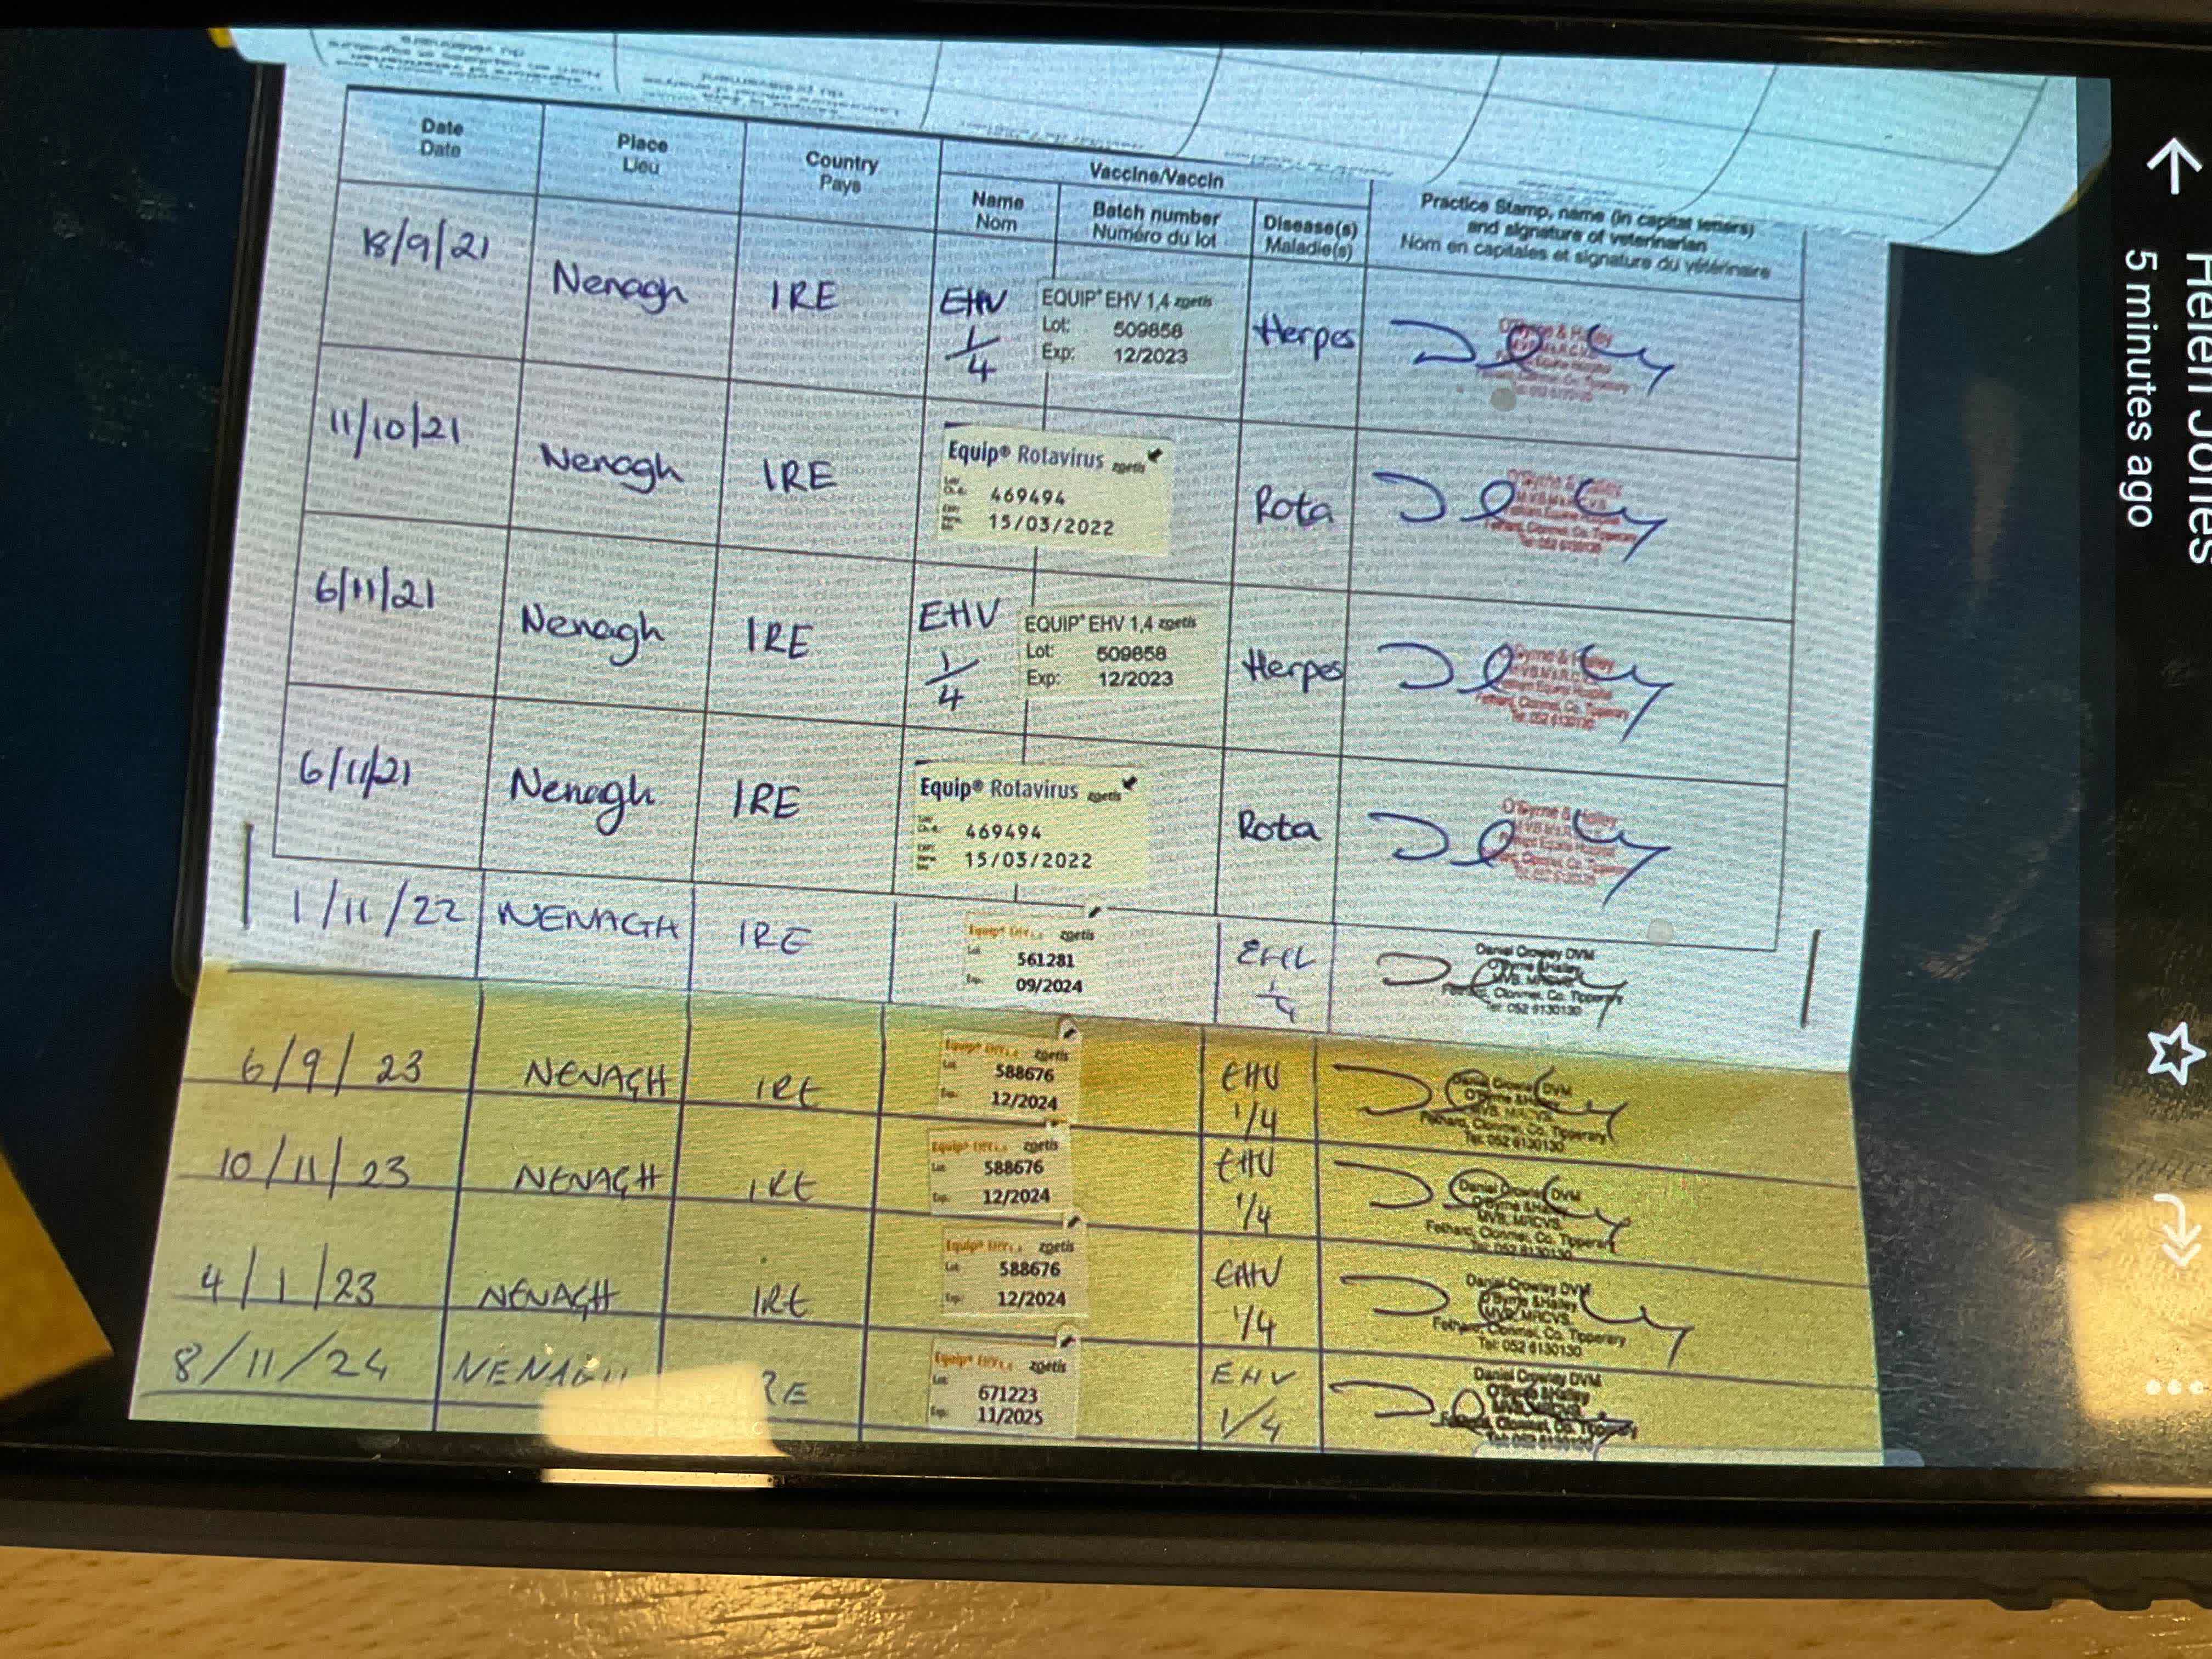 Date
Date
Place
Lieu
Country
Pays
Vaccine/Vaccin
Name
Nom
Batch number
Numéro du lot
Disease(s)
Maladie(s)
Practice Stamp, name (in capital letters)
and signature of veterinarian
Nom en capitales et signature du vétérinaire
18/9/21
Nenagh
IRE
EHV
1/4
EQUIP® EHV 1,4 zoetis
Lot: 509858
Exp: 12/2023
Herpes
11/10/21
Nenagh
IRE
Equip® Rotavirus zoetis
469494
15/03/2022
Rota
6/11/21
Nenagh
IRE
EHV
1/4
EQUIP® EHV 1,4 zoetis
Lot: 509858
Exp: 12/2023
Herpes
O'Byrne & Halley
Fethard, Clonmel, Co. Tipperary
Tel: 052 6130130
6/11/21
Nenagh
IRE
Equip® Rotavirus zoetis
469494
15/03/2022
Rota
O'Byrne & Halley
1/11/22
NENAGH
IRE
Equip® zoetis
Lot 561281
Exp. 09/2024
1/4
Daniel Crowley DVM
O'Byrne & Halley
MVB, MRCVS,
Fethard, Clonmel, Co. Tipperary
Tel: 052 6130130
6/9/23
NENAGH
IRE
Equip® zoetis
Lot 588676
Exp. 12/2024
EHV
1/4
Daniel Crowley DVM
O'Byrne & Halley
MVB, MRCVS,
Fethard, Clonmel, Co. Tipperary
Tel: 052 6130130
10/11/23
NENAGH
IRE
Equip® zoetis
Lot 588676
Exp. 12/2024
EHV
1/4
Daniel Crowley DVM
O'Byrne & Halley
MVB, MRCVS,
Fethard, Clonmel, Co. Tipperary
Tel: 052 6130130
4/1/23
NENAGH
IRE
Equip® zoetis
Lot 588676
Exp. 12/2024
EHV
1/4
Daniel Crowley DVM
O'Byrne & Halley
MVB, MRCVS,
Fethard, Clonmel, Co. Tipperary
Tel: 052 6130130
8/11/24
NENAGH
IRE
Equip® zoetis
Lot 671223
Exp. 11/2025
EHV
1/4
Daniel Crowley DVM
O'Byrne & Halley
Fethard, Clonmel, Co. Tipperary
Tel: 052 6130130
Helen Jones
5 minutes ago